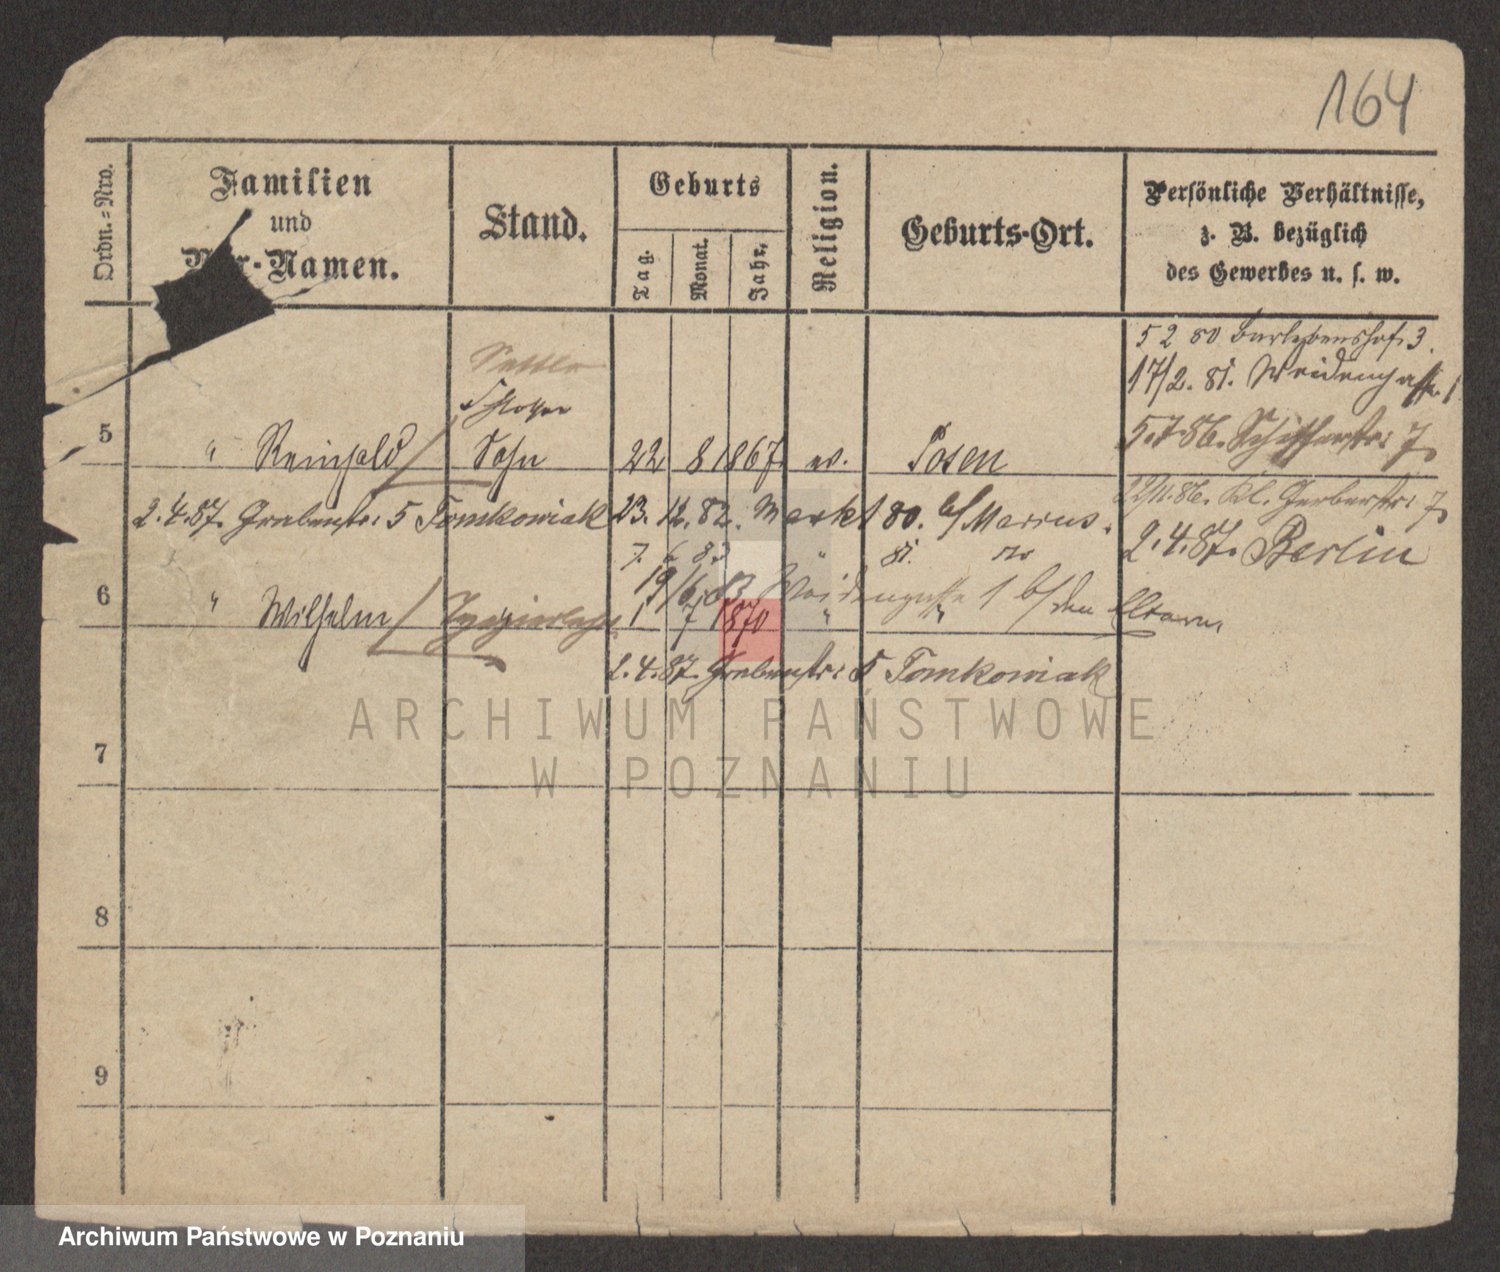 164
Ordn.-Nro.
Familien
und
Vor-Namen.
Stand.
Geburts
Tag.
Monat.
Jahr.
Religion.
Geburts-Ort.
Persönliche Verhältnisse,
z. B. bezüglich
des Gewerbes u. s. w.
5 2 80 Berlebenshof 3.
17/2. 81. Weidengasse 1
5.7.86. Schifferstr: 7
5 " Reinhold / Sohn 22 8 1867. ev. Posen
22/11.86. Kl. Gerberstr: 7
2.4.87. Grabenstr: 5 Tomkowiak 23. 12. 82. Markt 80. b/ Marcus.
7. 6 83 " 81.
2.4.87. Berlin
19/6. 83 Weidengasse 1 b/ den Eltern
6 " Wilhelm / 1 7 1870 " "
2.4.87. Grabenstr: 5 Tomkowiak
7
8
9
ARCHIWUM PAŃSTWOWE
W POZNANIU
Archiwum Państwowe w Poznaniu